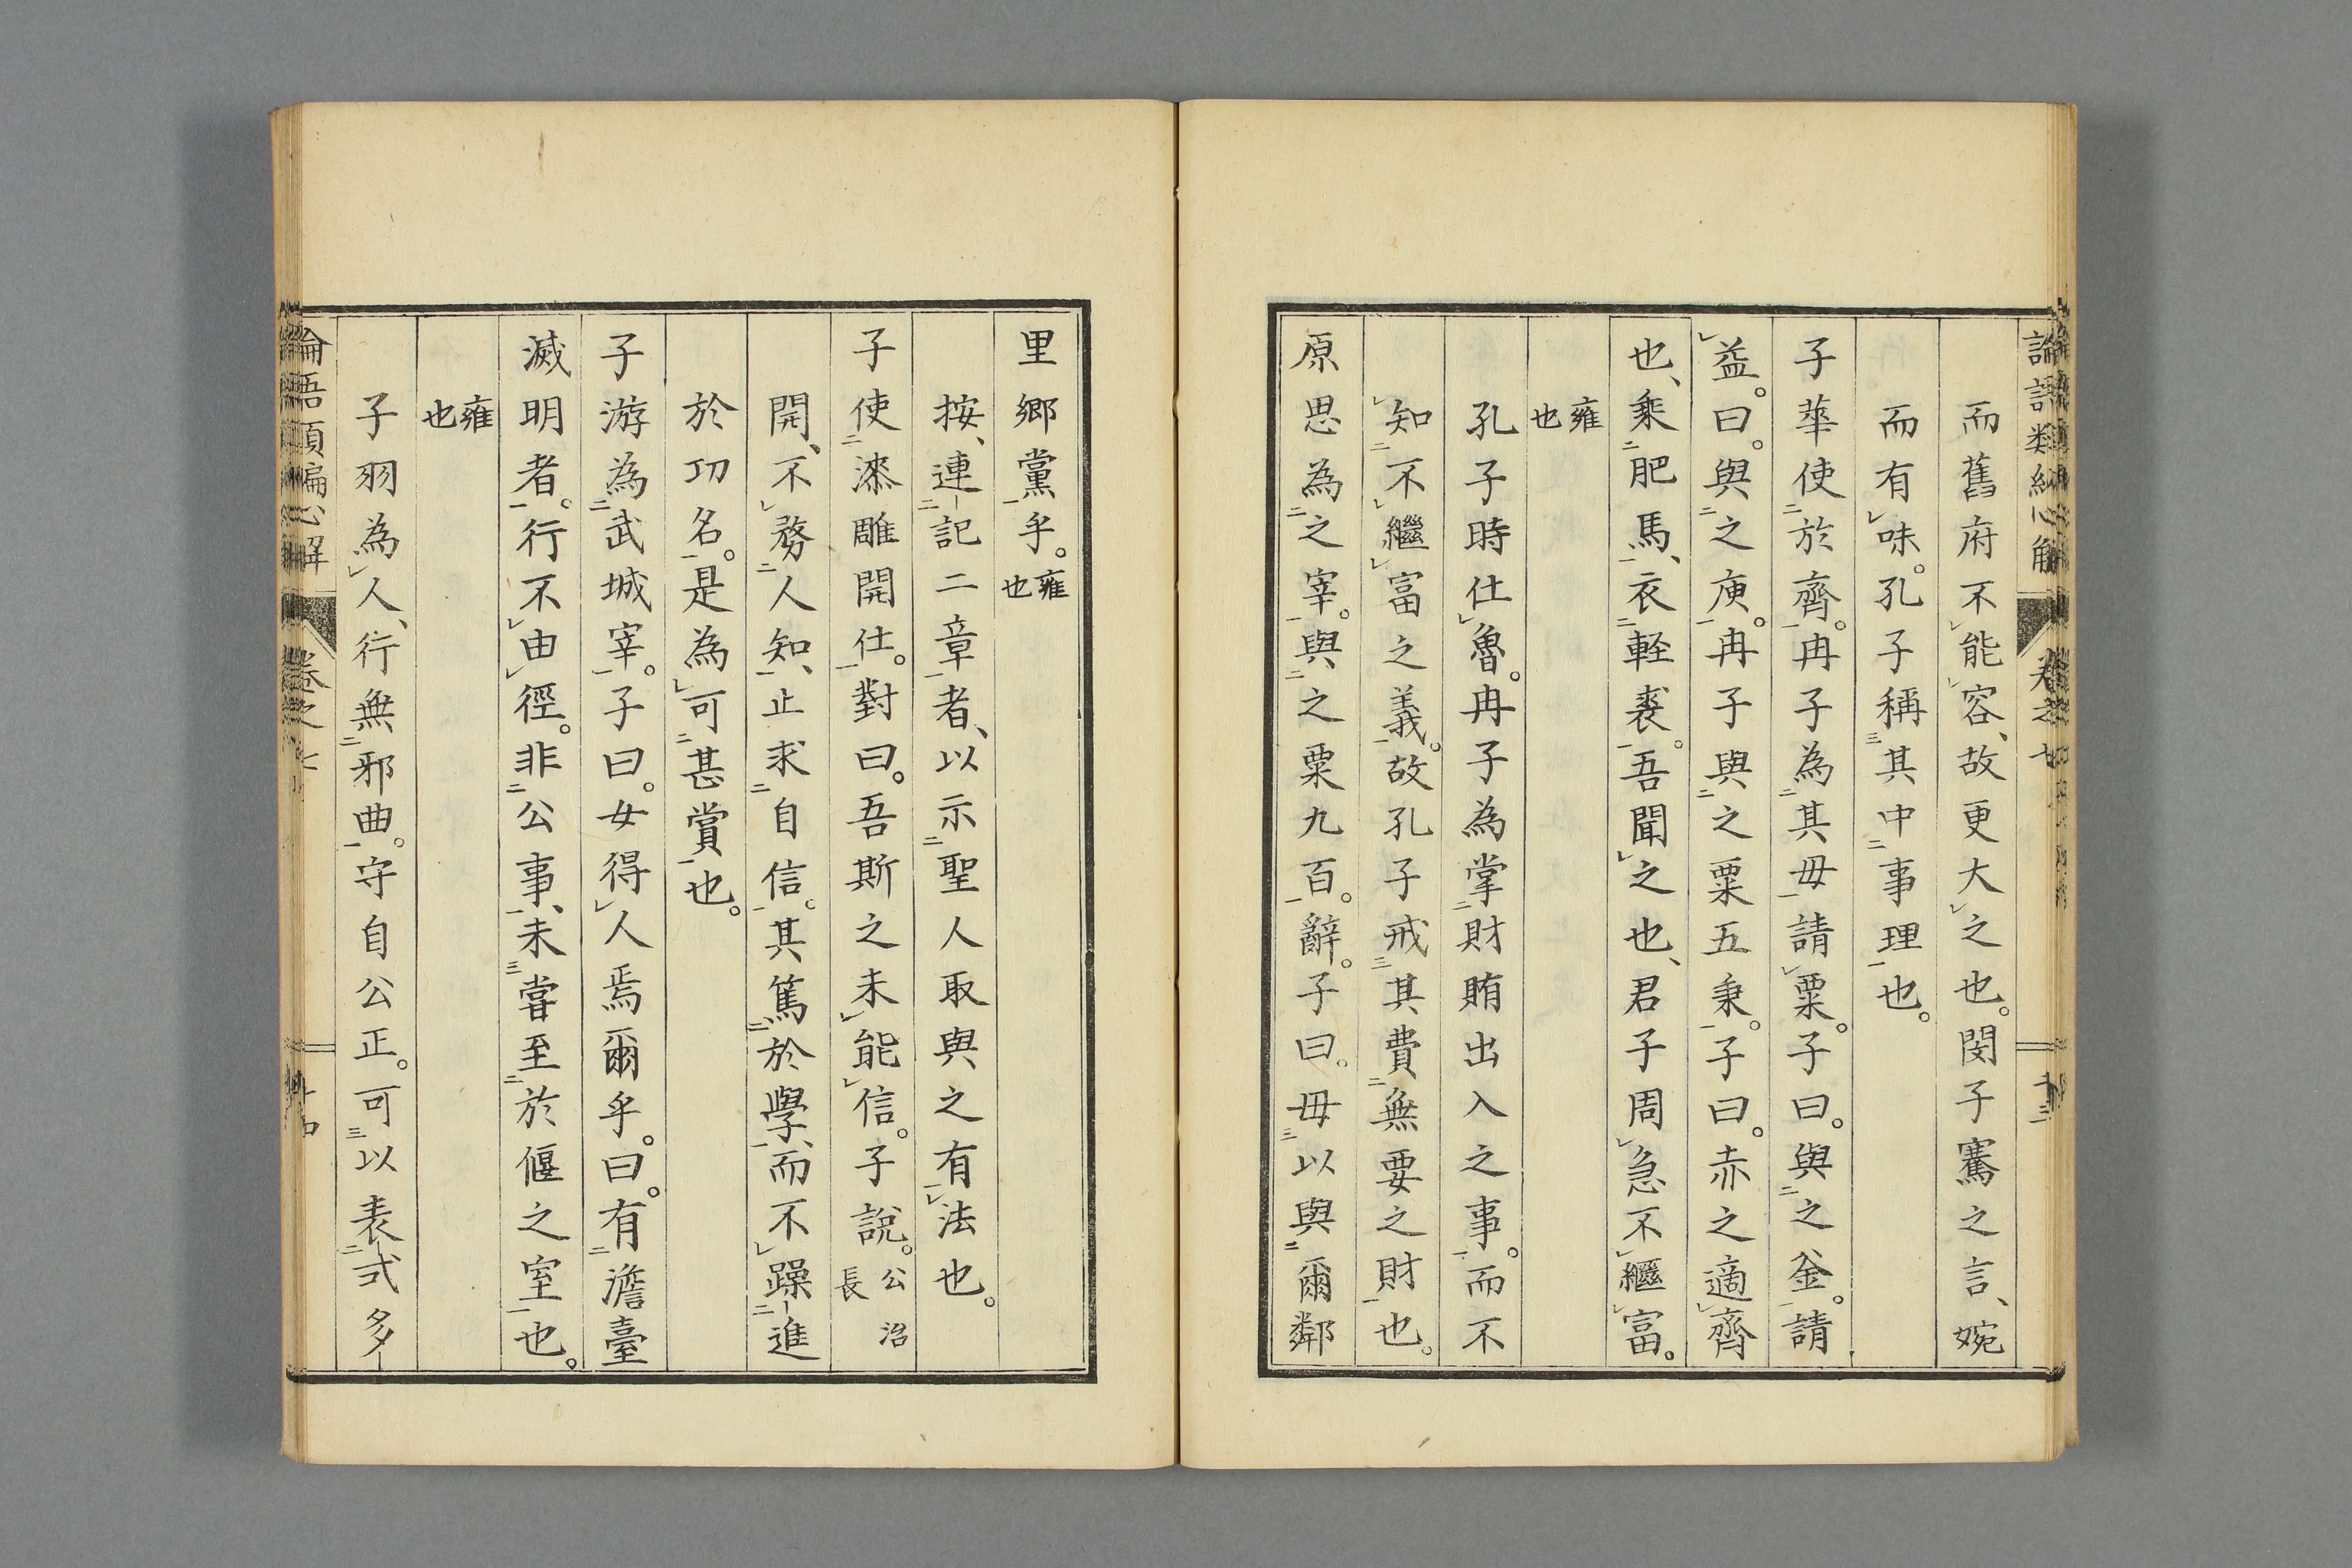 而舊府不能容、故更大之也。閔子騫之言、婉
而有味。孔子稱其中事理也。
子華使於齊。冉子為其毋請粟。子曰。與之釜。請
益。曰。與之庾。冉子與之粟五秉。子曰。赤之適齊
也、乘肥馬、衣軽裘。吾聞之也、君子周急不繼富。
雍也
孔子時仕魯。冉子為掌財賄出入之事。而不
知不繼富之義。故孔子戒其費無要之財也。
原思為之宰。與之粟九百。辭。子曰。毋以與爾鄰
里鄉黨乎。雍也
按、連記二章者、以示聖人取與之有法也。
子使漆雕開仕。對曰。吾斯之未能信。子說。公冶長
開、不務人知、止求自信。其篤於學、而不躁進
於功名。是為可甚賞也。
子游為武城宰。子曰。女得人焉爾乎。曰。有澹臺
滅明者。行不由徑。非公事、未嘗至於偃之室也。
雍也
子羽為人、行無邪曲。守自公正。可以表式多